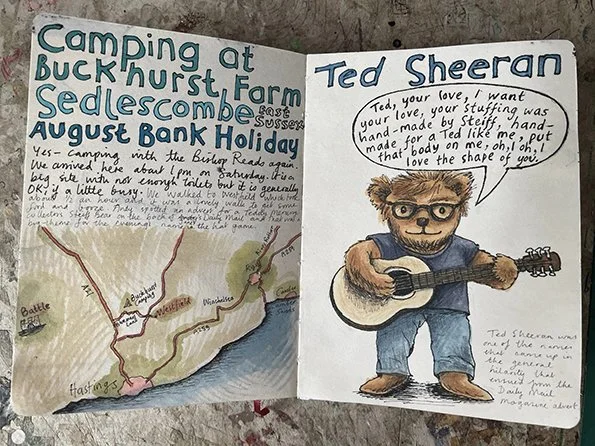 Camping at
Buckhurst Farm
Sedlescombe East
Sussex
August Bank Holiday
Yes - camping with the Bishop Reads again.
We arrived here about 1pm on Saturday. it is a
big site with not enough toilets but it is generally
OK, if a little busy. We walked to Westfield which took
about ½ an hour and it was a lovely walk to get some
food and
collectors Steiff bear on the back of Daily Mail and that was a
big theme for the evening's name in the hat game.
A21
Battle
Buckhurst
Camping
Westfield
Winchelsea
A259
Rye
A259
Camber
Sands
Hastings
Ted Sheeran
Ted, your love, I want
your love, your stuffing was
hand-made by Steiff, hand-
made for a Ted like me, put
that body on me, oh, I oh, I
love the shape of you.
Ted Sheeran was
one of the names
that came up in
the general
hilarity that
ensued from the
Daily Mail
magazine advert